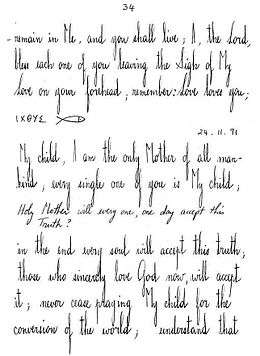 34
- remain in Me, and you shall live; I, the Lord,
bless each one of you leaving the Sigh of My
Love on your forehead; remember: Love loves you;
ΙΧΘΥΣ
24.11.91
My child, I am the only Mother of all man-
kind, every single one of you is My child;
Holy Mother will every one, one day accept this
Truth?
in the end every soul will accept this truth;
those who sincerely love God now, will accept
it; never cease praying My child for the
conversion of the world; understand that